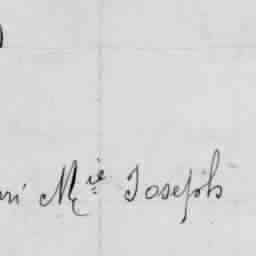 ri Mie Joseph